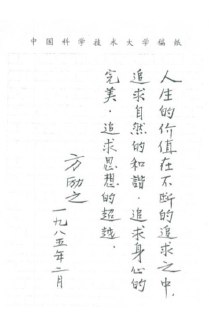 中国科学技术大学稿纸
人生的价值在不断的追求之中，
追求自然的和谐．追求身心的
完美．追求思想的超越．
方励之
一九八五年二月